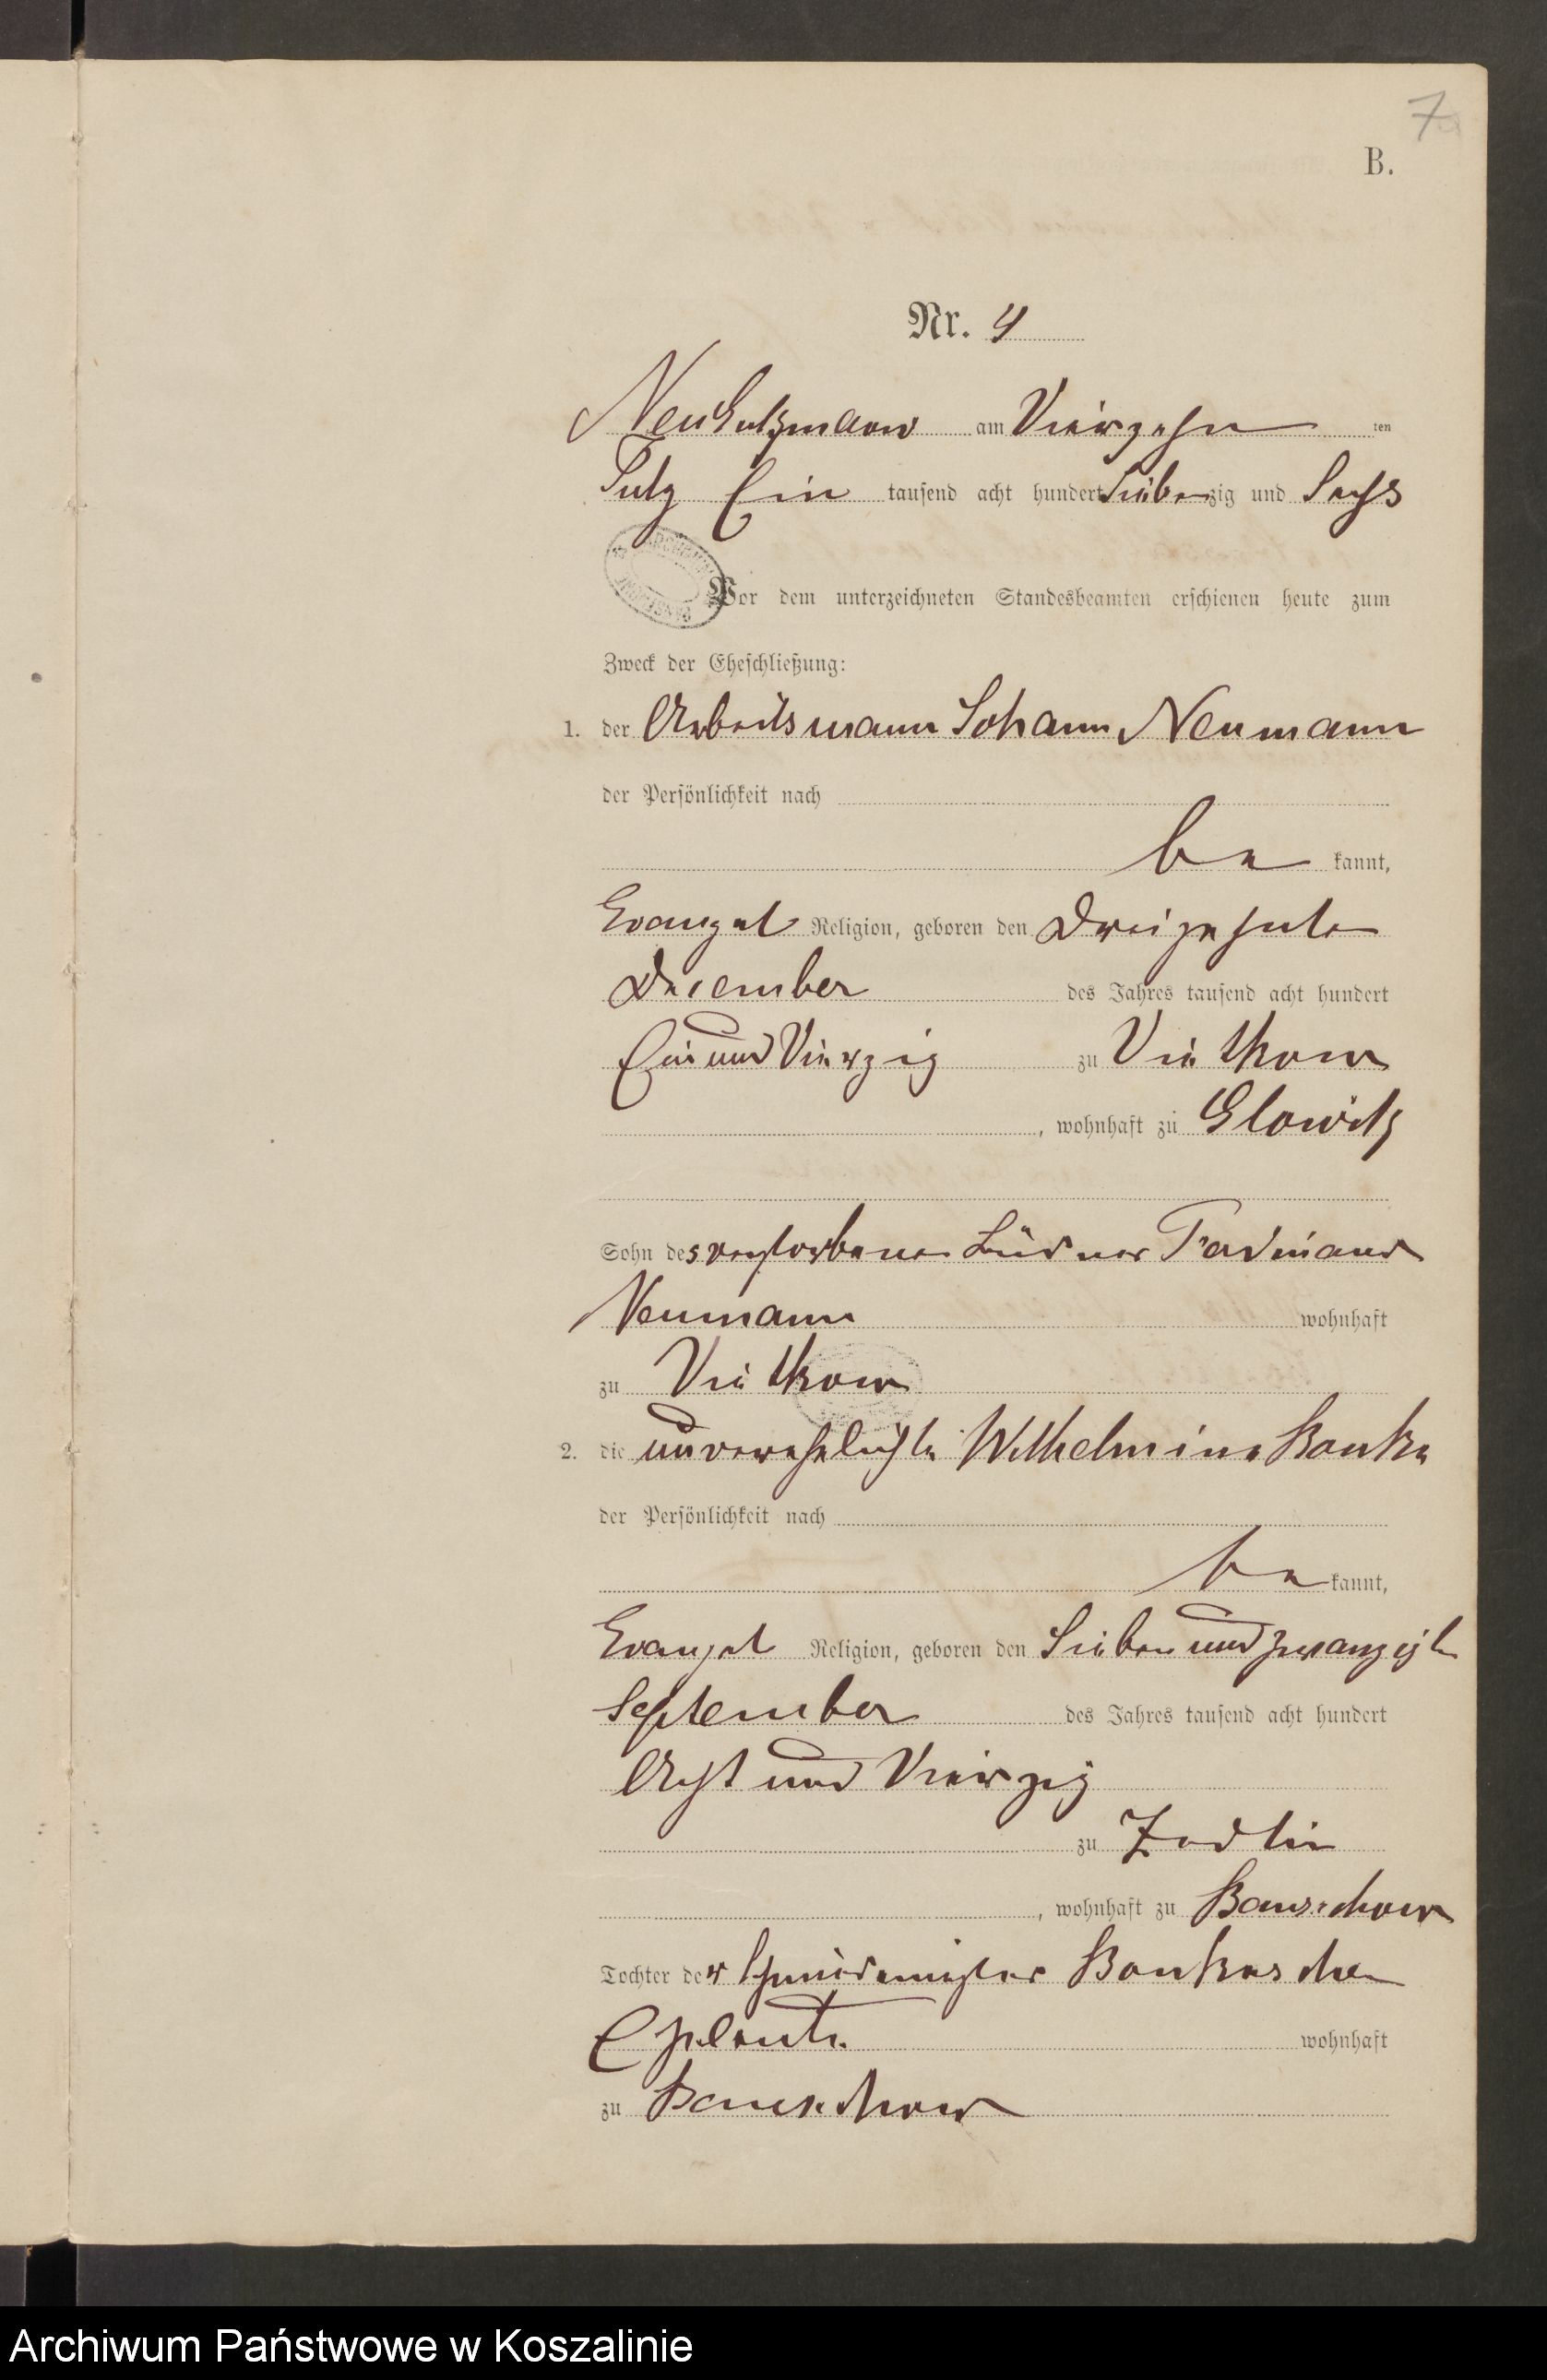 7
B.
Nr. 4
Neu Gutzmerow am Vierzehn ten
July Ein tausend acht hundert Siebenzig und Sechs
Vor dem unterzeichneten Standesbeamten erschienen heute zum
Zweck der Eheschließung:
1. der Arbeitsmann Johann Neumann
der Persönlichkeit nach
be kannt,
Evangel Religion, geboren den Dreizehnte
December des Jahres tausend acht hundert
Ein und Vierzig zu Viethkow
, wohnhaft zu Glowitz
Sohn des verstorbenen Büdner Ferdinand
Neumann wohnhaft
zu Viethkow
2. die unverehelichte Wilhelmine Banke
der Persönlichkeit nach
be kannt,
Evangel Religion, geboren den Sieben und zwanzigste
September des Jahres tausend acht hundert
Acht und Vierzig
zu Zedlin
, wohnhaft zu
Tochter der Schmidemeister Bankesche
Eheleute wohnhaft
zu
Archiwum Państwowe w Koszalinie